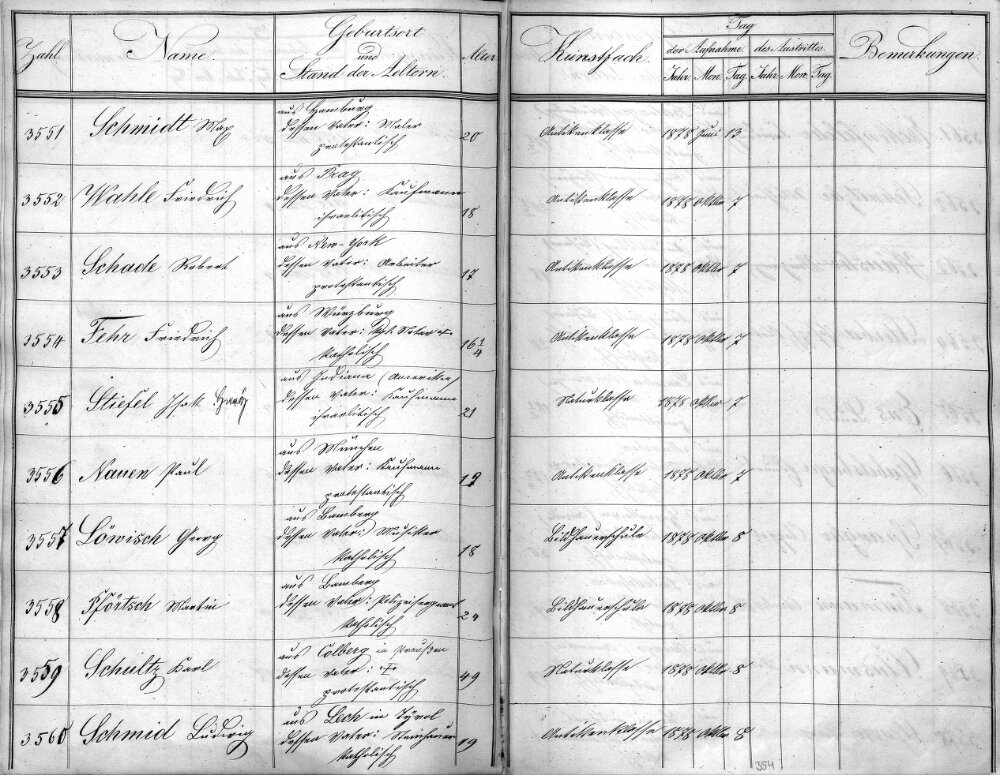 Zahl. Name. Geburtsort und Stand der Aeltern. Alter. Kunstfach. Tag der Aufnahme. des Austrittes. Bemerkungen.
Jahr. Mon. Tag. Jahr. Mon. Tag.
aus Hamburg
3551 Schmidt Max dessen Vater: Maler 20 Antikenklasse 1878 Juni 13
protestantisch
aus Prag
3552 Wahle Friedrich dessen Vater: Kaufmann 18 Antikenklasse 1878 Oktbr 7
israelitisch
aus New-York
3553 Schade Robert dessen Vater: Arbeiter 17 Antikenklasse 1878 Oktbr 7
protestantisch
aus Würzburg
3554 Fehr Friedrich dessen Vater: kgl. Notar † 16 1/4 Antikenklasse 1878 Oktbr 7
katholisch
aus Indiana (Amerika)
3555 Stiefel Isak dessen Vater: Kaufmann 21 Naturklasse 1878 Oktbr 7
israelitisch
aus München
3556 Nauen Paul dessen Vater: Kaufmann 19 Antikenklasse 1878 Oktbr 7
protestantisch
aus Bamberg
3557 Löwisch Georg dessen Vater: Musiker 18 Bildhauerschule 1878 Oktbr 8
katholisch
aus Bamberg
3558 Förtsch Martin dessen Vater: Polizeisergeant 24 Bildhauerschule 1878 Oktbr 8
katholisch
aus Colberg in Preußen
3559 Schultz Karl dessen Vater: † 49 Naturklasse 1878 Oktbr 8
protestantisch
aus Lech in Tyrol
3560 Schmid Ludwig dessen Vater: 19 Antikenklasse 1878 Oktbr 8
katholisch
354